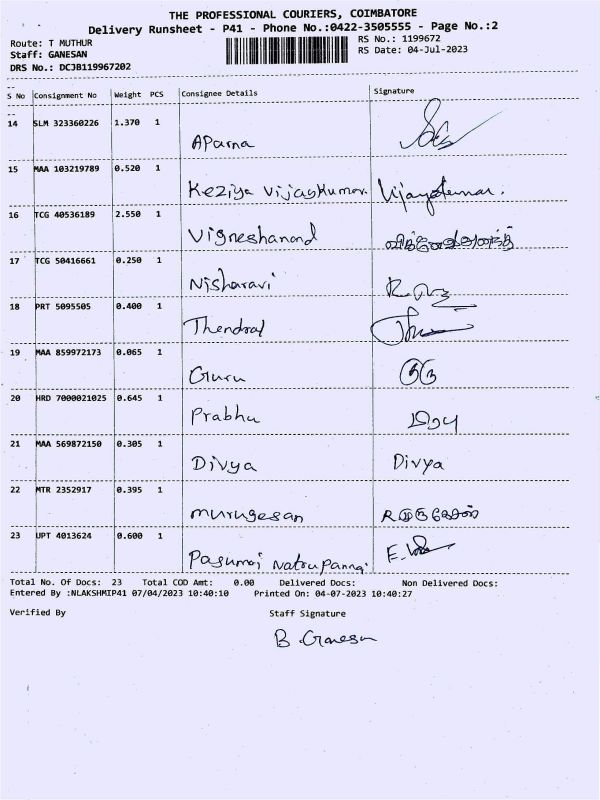 THE PROFESSIONAL COURIERS, COIMBATORE
Delivery Runsheet - P41 - Phone No.:0422-3505555 - Page No.:2
Route: T MUTHUR RS No.: 1199672
Staff: GANESAN RS Date: 04-Jul-2023
DRS No.: DCJB119967202
S No Consignment No Weight PCS Consignee Details Signature
14 SLM 323360226 1.370 1
APaina
15 MAA 103219789 0.520 1
Keziya Vijaykumar. Vijayakumar.
16 TCG 40536189 2.550 1
Vigneshanand
17 TCG 50416661 0.250 1
Nisharavi
18 PRT 5095505 0.400 1
Thendral
19 MAA 859972173 0.065 1
Guru குரு
20 HRD 7000021025 0.645 1
Prabhu பிரபு
21 MAA 569872150 0.305 1
Divya Divya
22 MTR 2352917 0.395 1
murugesan R முருகேசன்
23 UPT 4013624 0.600 1
Pasumai Natrupannai
Total No. Of Docs: 23 Total COD Amt: 0.00 Delivered Docs: Non Delivered Docs:
Entered By :NLAKSHMIP41 07/04/2023 10:40:10 Printed On: 04-07-2023 10:40:27
Verified By Staff Signature
B. Ganesan